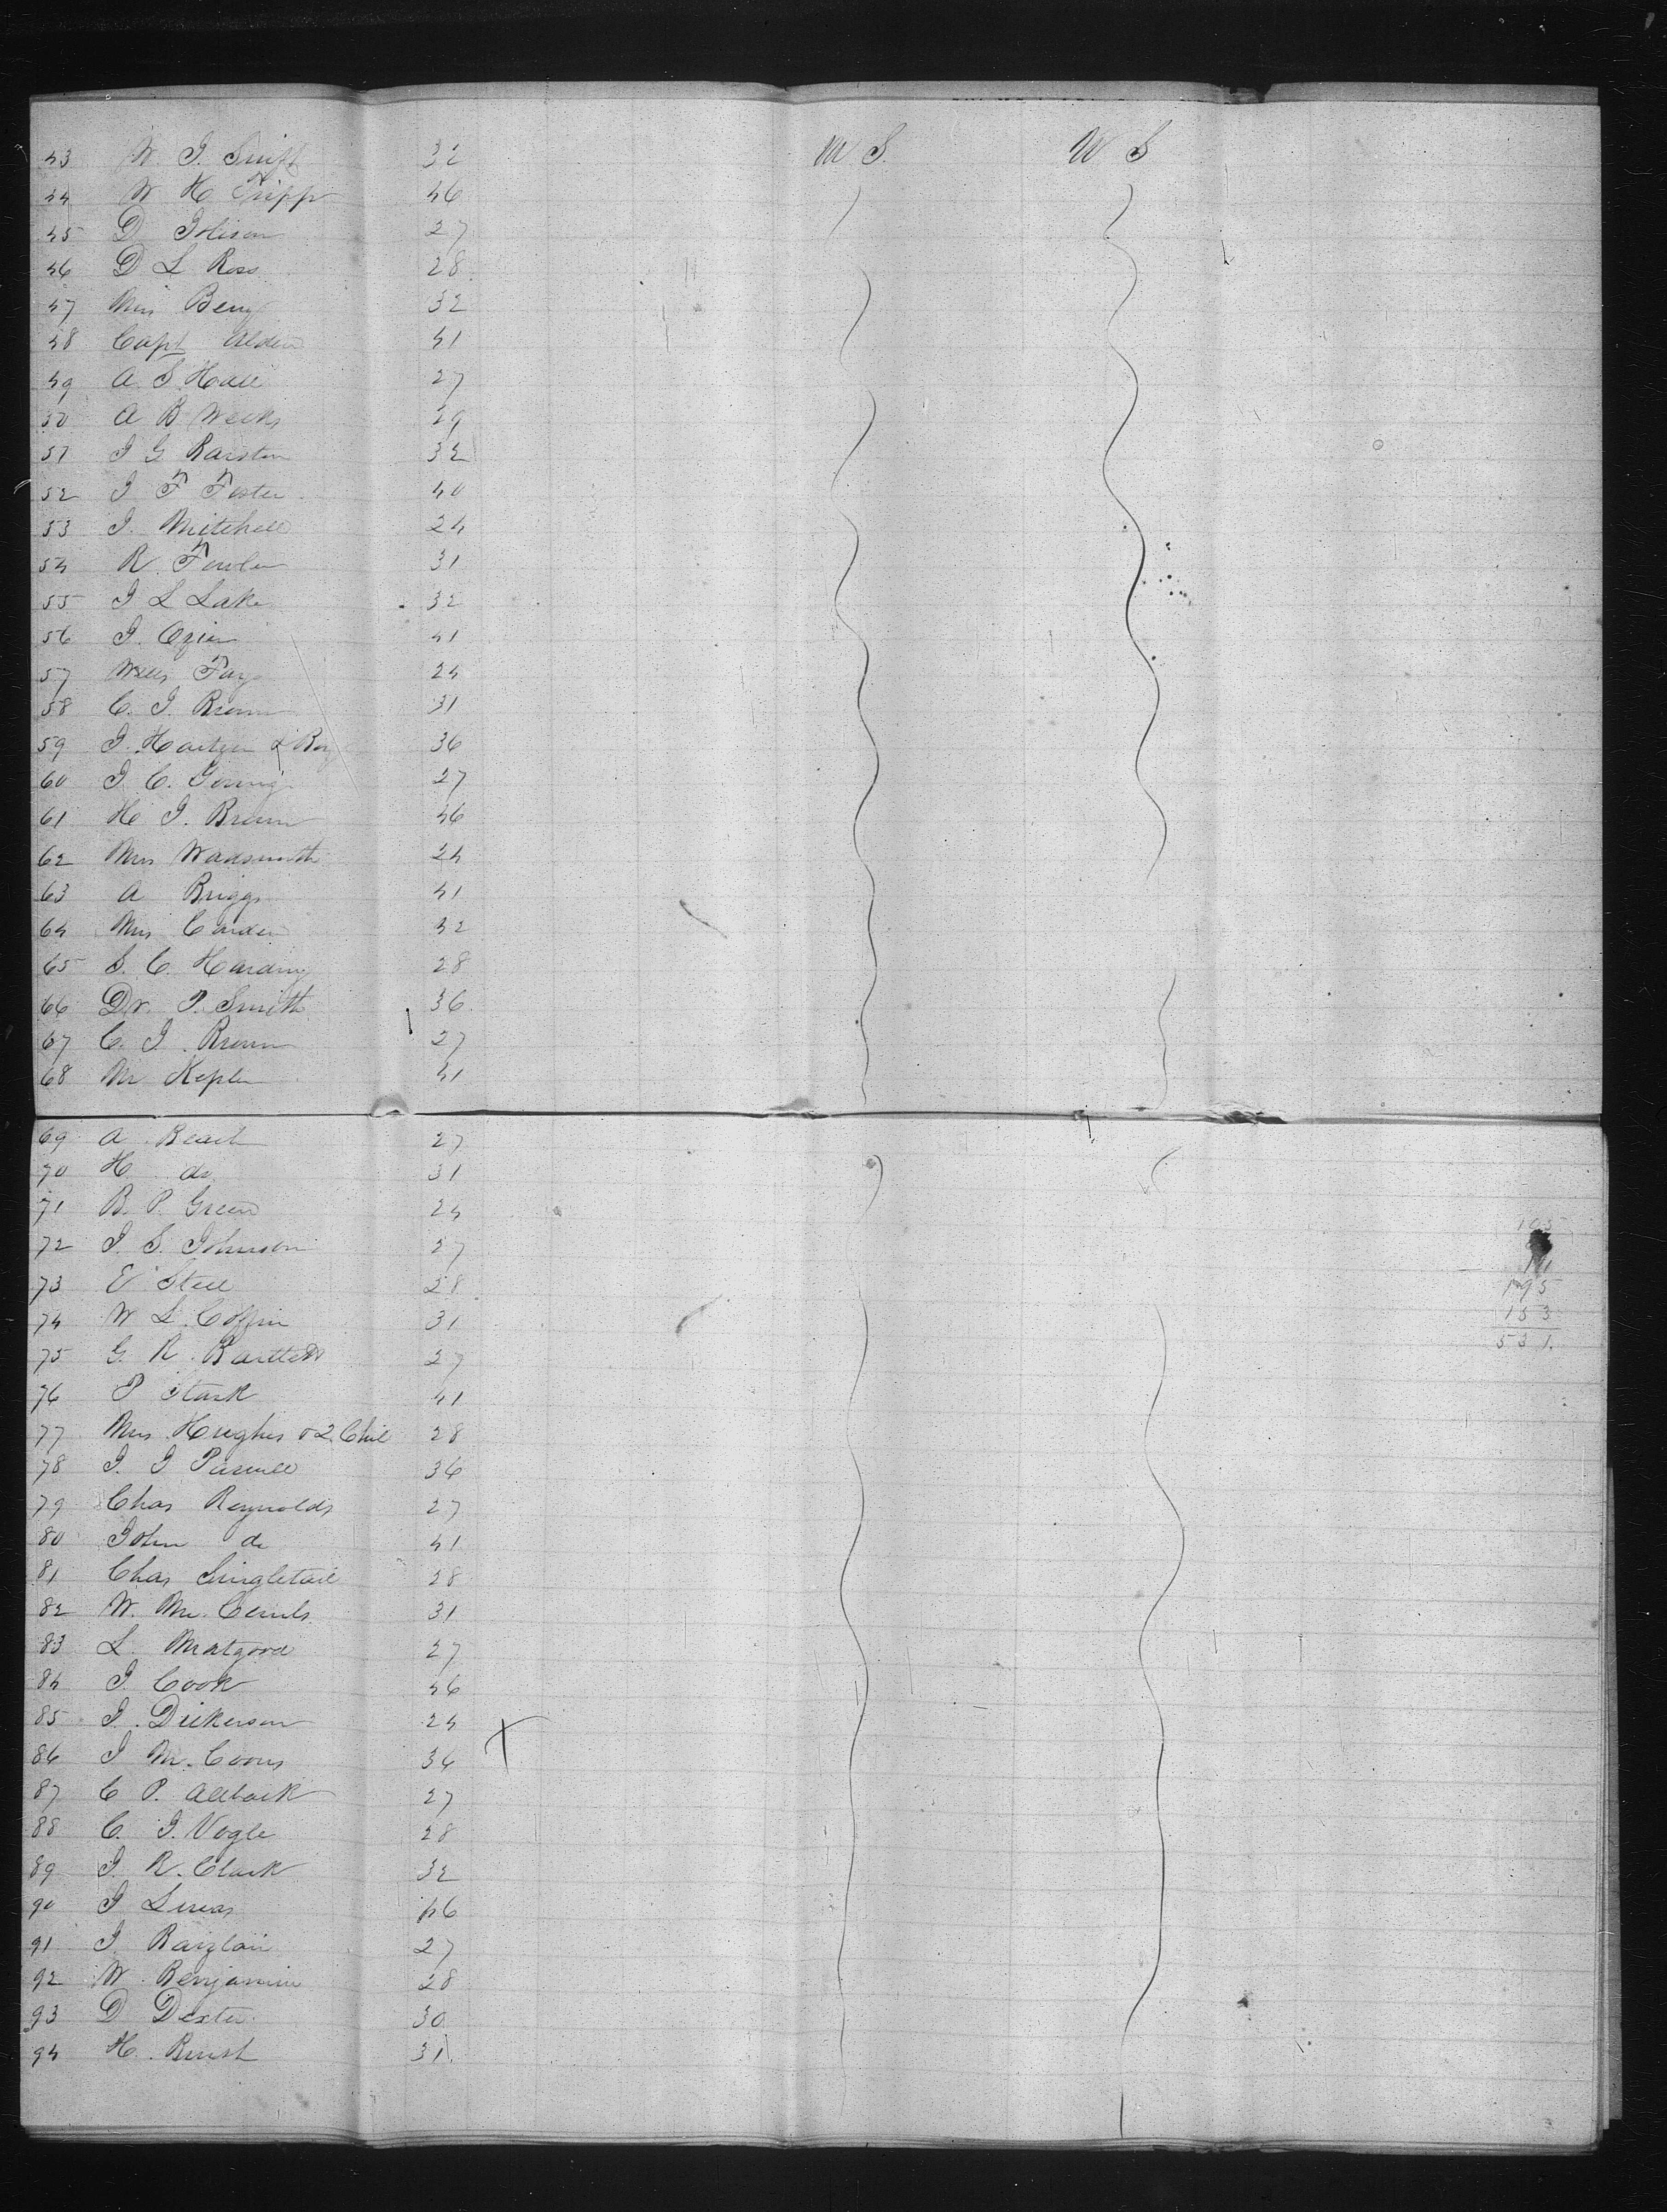 43 W. J. Swift 32 M S. W S
44 W H Tripp 46
45 D Jolison 27
46 D L Ross 28
47 Mrs Berry 32
48 Capt Alden 41
49 A. S. Hall 27
50 A B Weeks 29
51 J G Rarston 32
52 J F Foster 40
53 J. Mitchell 24
54 R. Fowler 31
55 J L Lake 32
56 J. 41
57 Wells Fargo 24
58 C. J. Brown 31
59 J. Hartzen & Boy 36
60 J C. Young 27
61 H J. Brown 46
62 Mrs Wadsworth 24
63 A Briggs 41
64 Mrs Carden 32
65 S. C. Harding 28
66 Dr. P. Smith 36
67 C. J. Brown 27
68 Mr Kepler 41
69 A. Beach 27
70 H do 31
71 B. P. Green 24
72 J. S. Johnson 27
73 E Steel 28
195
74 W L. Coffin 31
153
75 G. R. Bartlett 27
531.
76 P Stark 41
77 Mrs Hughes & 2 Chil 28
78 J. J Parnell 36
79 Chas Reynolds 27
80 John do 41
81 Chas Singletail 28
82 W. Mc. 31
83 L. Matgood 27
84 J. Cook 46
85 J. Dickerson 24 X
86 J M. Coons 36
87 C P. Allback 27
88 C. J. Vogle 28
89 J. R. Clark 32
90 J Lucas 46
91 J. 27
92 W. Benjamin 28
93 D Dexter 30
94 H. Brush 31